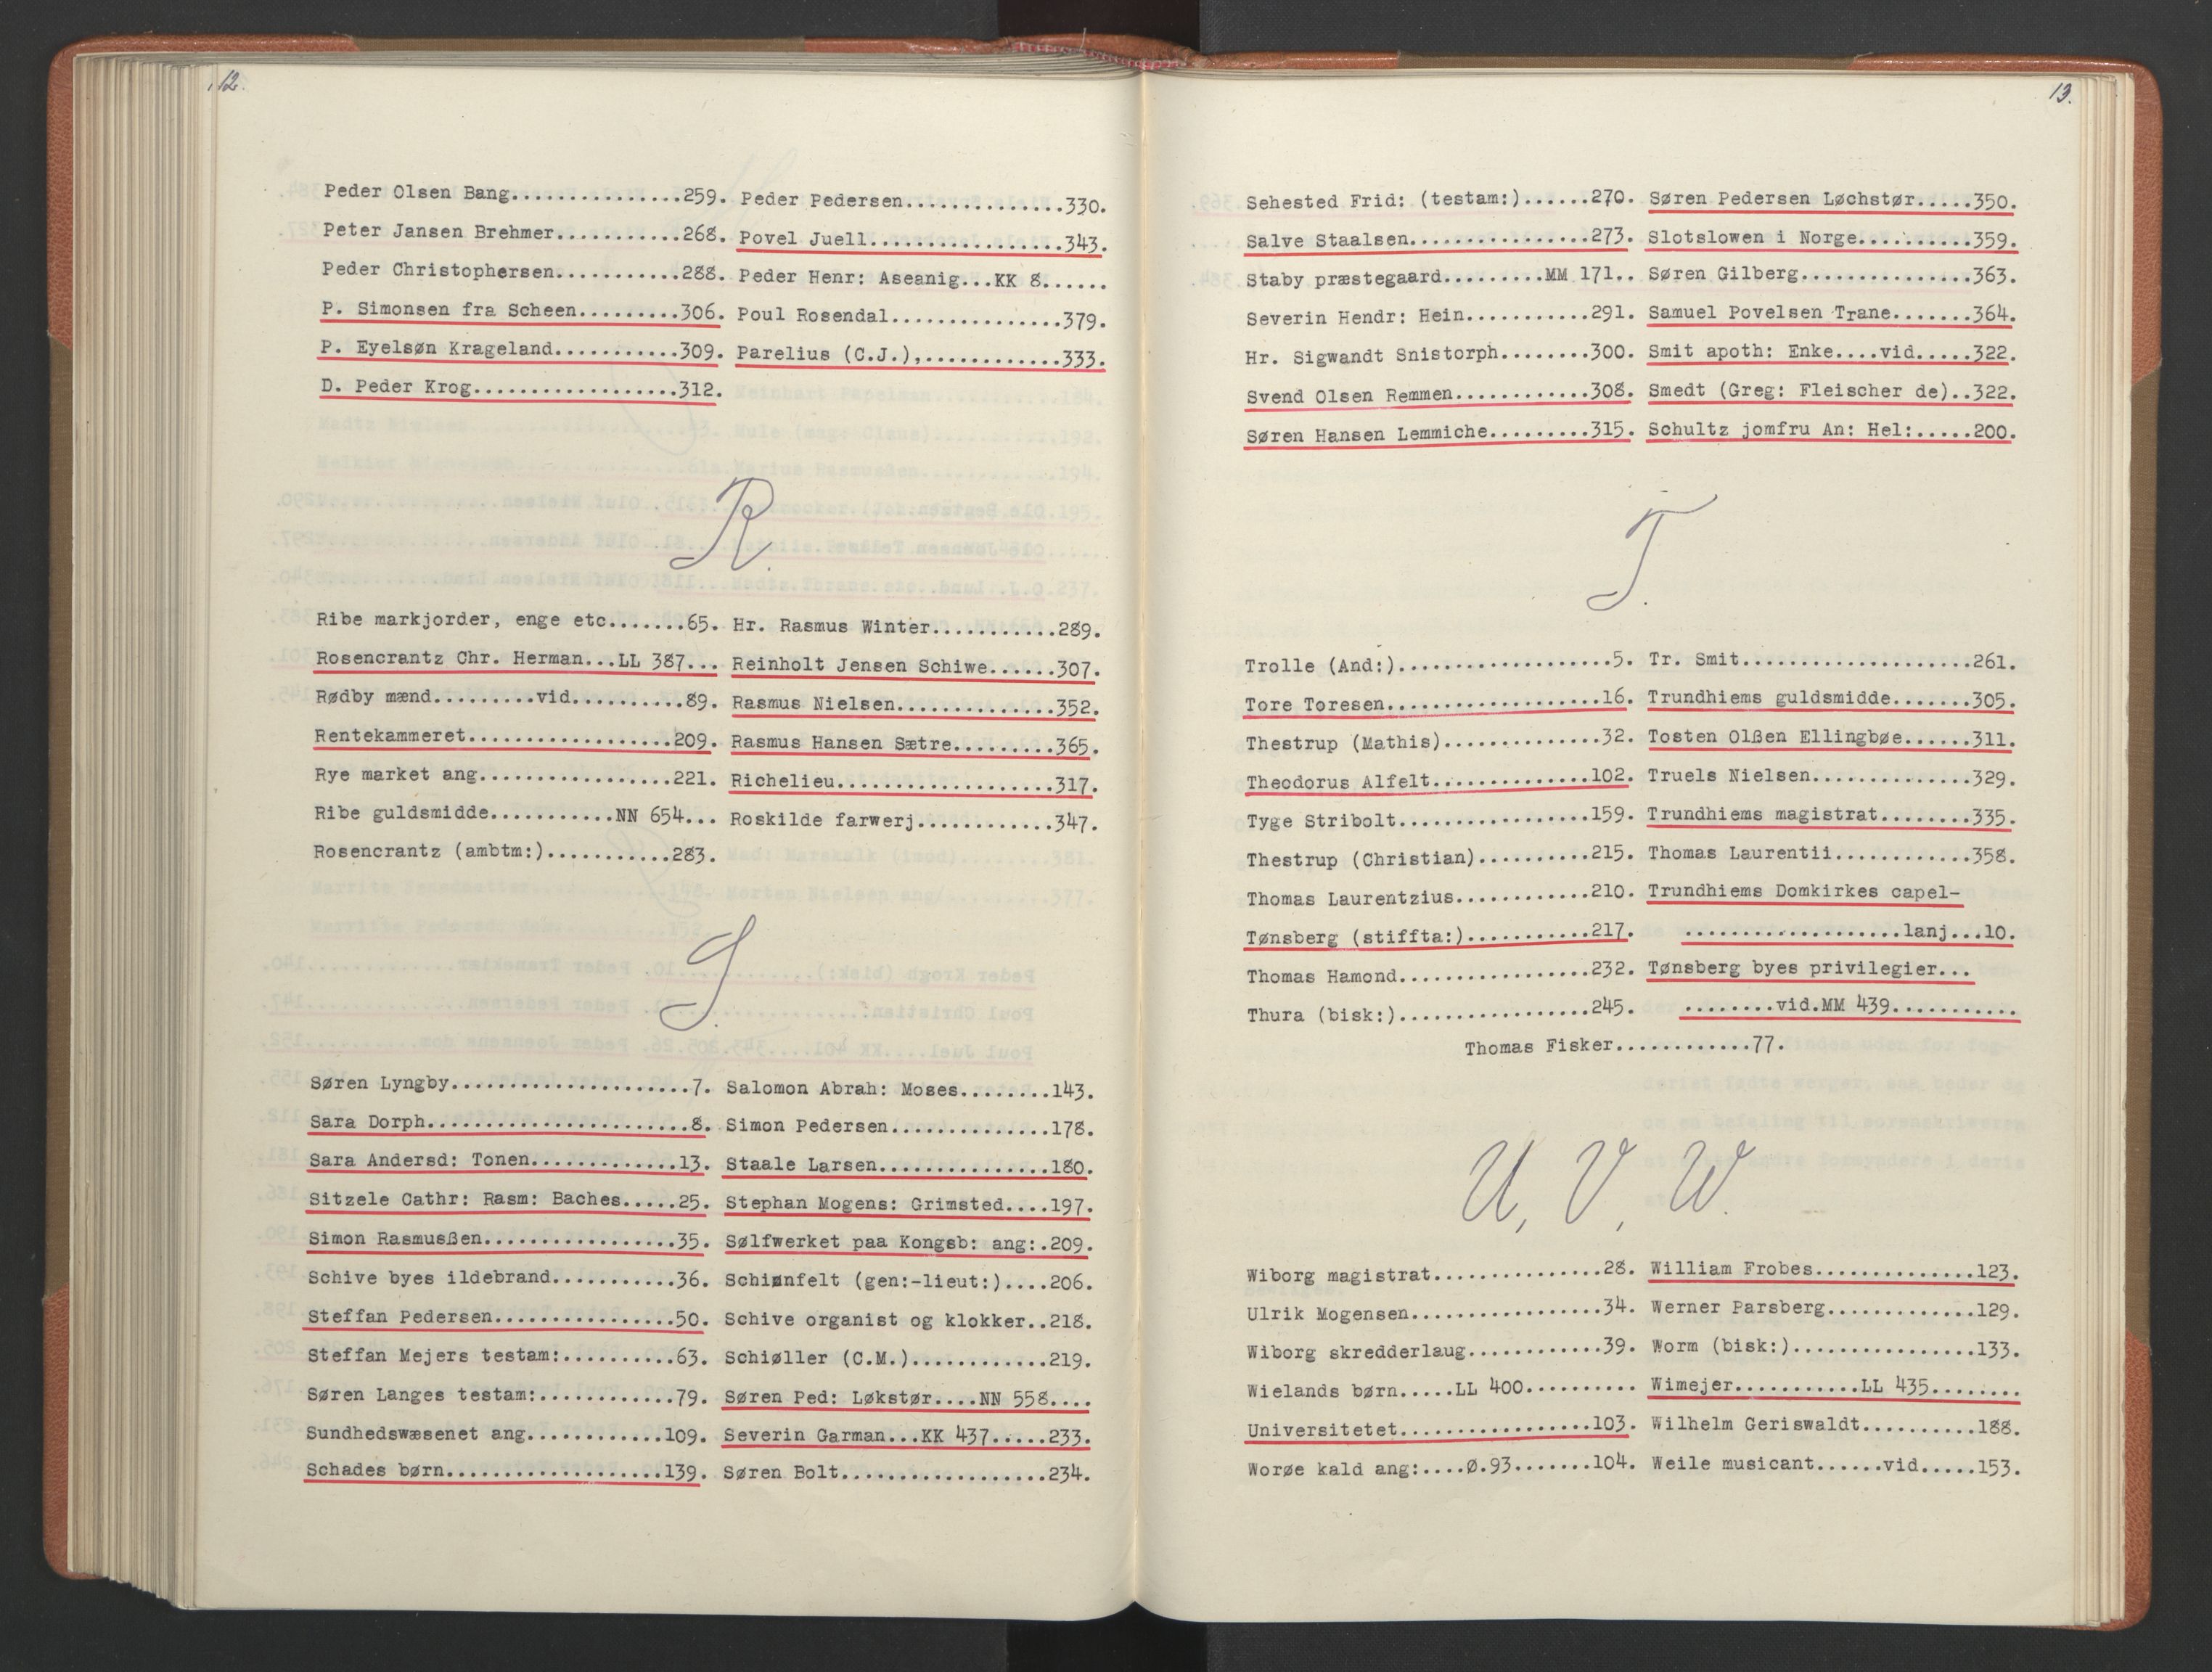 12.
Peder Olsen Bang...............259.
Peter Jansen Brehmer...........268.
Peder Christophersen...........288.
P. Simonsen fra Scheen.........306.
P. Eyelsøn Krageland...........309.
D. Peder Krog..................312.
Peder Pedersen..............330.
Povel Juell.................343.
Peder Henr: Aseanig...KK 8......
Poul Rosendal...............379.
Parelius (C.J.),............333.
R.
Ribe markjorder, enge etc.......65.
Rosencrantz Chr. Herman...LL 387...
Rødby mænd.........vid..........89.
Rentekammeret..................209.
Rye market ang.................221.
Ribe guldsmidde...........NN 654...
Rosencrantz (ambtm:)...........283.
Hr. Rasmus Winter...........289.
Reinholt Jensen Schiwe......307.
Rasmus Nielsen..............352.
Rasmus Hansen Sætre.........365.
Richelieu...................317.
Roskilde farwerj............347.
S.
Søren Lyngby.....................7.
Sara Dorph.......................8.
Sara Andersd: Tonen.............13.
Sitzele Cathr: Rasm: Baches.....25.
Simon Rasmusßen.................35.
Schive byes ildebrand...........36.
Steffan Pedersen................50.
Steffan Mejers testam:..........63.
Søren Langes testam:............79.
Sundhedswæsenet ang............109.
Schades børn...................139.
Salomon Abrah: Moses........143.
Simon Pedersen..............178.
Staale Larsen...............180.
Stephan Mogens: Grimsted....197.
Sølfwerket paa Kongsb: ang:.209.
Schiønfelt (gen:-lieut:)....206.
Schive organist og klokker..218.
Schiøller (C.M.)............219.
Søren Ped: Løkstør....NN 558....
Severin Garman...KK 437.....233.
Søren Bolt..................234.
13.
Sehested Frid: (testam:)......270.
Salve Staalsen................273.
Staby præstegaard.........MM 171..
Severin Hendr: Hein...........291.
Hr. Sigwandt Snistorph........300.
Svend Olsen Remmen............308.
Søren Hansen Lemmiche.........315.
Søren Pedersen Løchstør.....350.
Slotslowen i Norge..........359.
Søren Gilberg...............363.
Samuel Povelsen Trane.......364.
Smit apoth: Enke....vid.....322.
Smedt (Greg: Fleischer de)..322.
Schultz jomfru An: Hel:.....200.
T.
Trolle (And:)...................5.
Tore Toresen...................16.
Thestrup (Mathis)..............32.
Theodorus Alfelt..............102.
Tyge Stribolt.................159.
Thestrup (Christian)..........215.
Thomas Laurentzius............210.
Tønsberg (stiffta:)...........217.
Thomas Hamond.................232.
Thura (bisk:).................245.
Tr. Smit....................261.
Trundhiems guldsmidde.......305.
Tosten Olßen Ellingbøe......311.
Truels Nielsen..............329.
Trundhiems magistrat........335.
Thomas Laurentii............358.
Trundhiems Domkirkes capel-
...................lanj...10.
Tønsberg byes privilegier...
........vid.MM 439...........
Thomas Fisker............77.
U, V, W.
Wiborg magistrat...............28.
Ulrik Mogensen.................34.
Wiborg skredderlaug............39.
Wielands børn.....LL 400..........
Universitetet.................103.
Worøe kald ang:....Ø.93.......104.
William Frobes..............123.
Werner Parsberg.............129.
Worm (bisk:)................133.
Wimejer...........LL 435........
Wilhelm Geriswaldt..........188.
Weile musicant......vid.....153.